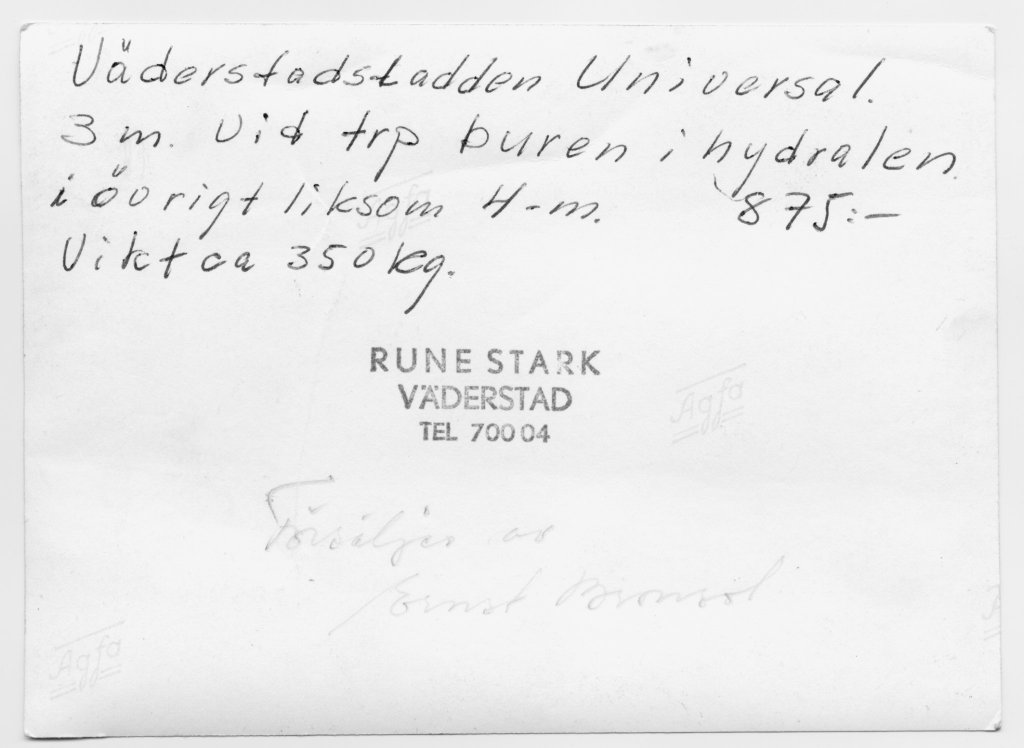 Väderstadsladden Universal.
3 m. Vid trp buren i hydralen.
i övrigt liksom 4-m. 875:-
Vikt ca 350 kg.
RUNE STARK
VÄDERSTAD
TEL 700 04
Agfa
Försäljes av
Ernst
Agfa